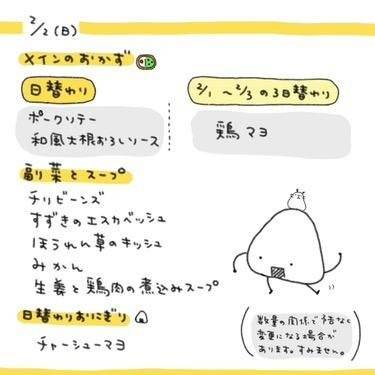 2/2(日)
メインのおかず
日替わり
ポークソテー
和風大根おろしソース
2/1〜2/3の3日替わり
鶏マヨ
副菜とスープ
チリビーンズ
すずきのエスカベッシュ
ほうれん草のキッシュ
みかん
生姜と鶏肉の煮込みスープ
日替わりおにぎり
チャーシューマヨ
(数量の関係で予告なく
変更になる場合が
あります。すみません。)